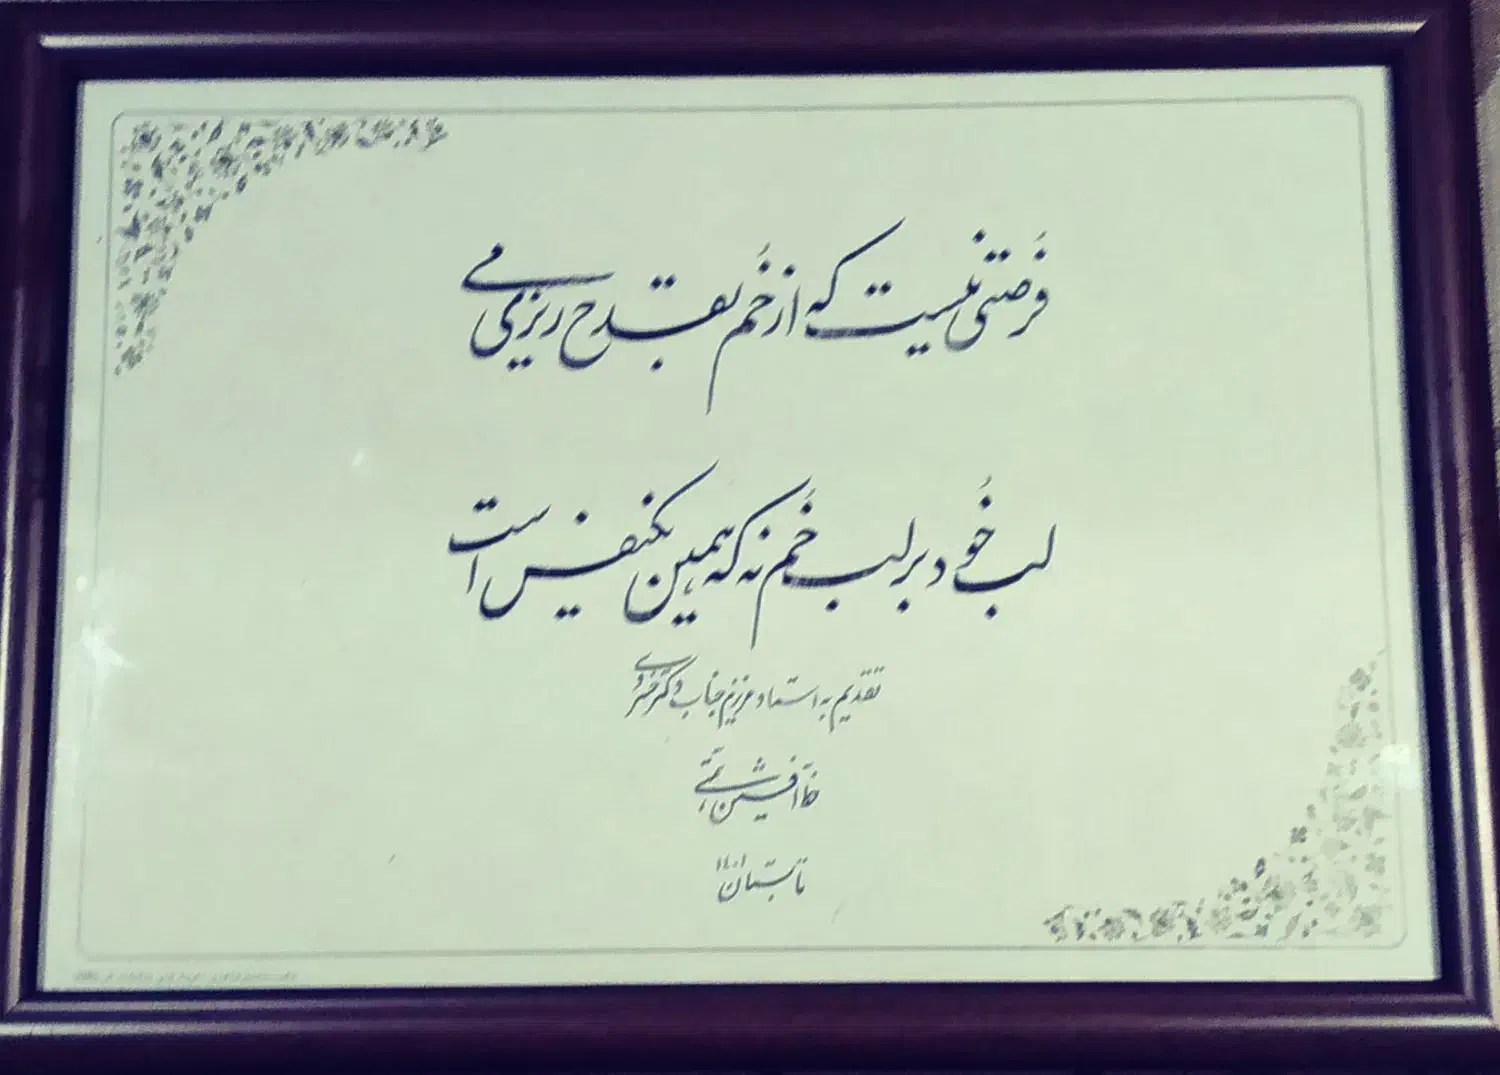 فُرصتی نیست که از خُم بقدح ریزی می
لب خُود بر لب خُم نه که همین یکنفس است
تقدیم به استاد عزیزم جناب دکتر خسروی
خط افشین
تابستان ۱۴۰۱